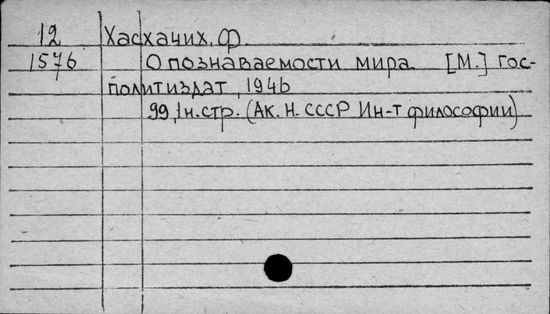 12 Хасхачих, Ф.
1576 О познаваемости мира. [М.] Гос-
политиздат, 1946
99, 1 н. стр. (Ак. Н. СССР Ин-т философии)